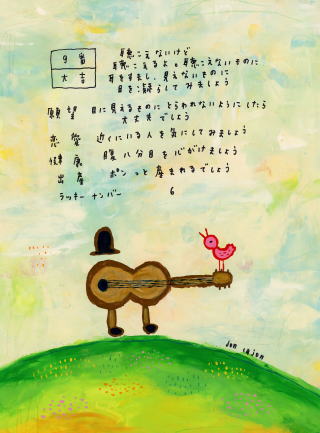 9番
大吉
聴こえないけど
聴こえるよ。聴こえないものに
耳をすまし、見えないものに
目を凝らしてみましょう
願望 目に見えるものにとらわれないようにしたら
大丈夫でしょう
恋愛 近くにいる人を気にしてみましょう
健康 腹八分目を心がけましょう
出産 ポンっと産まれるでしょう
ラッキーナンバー 6